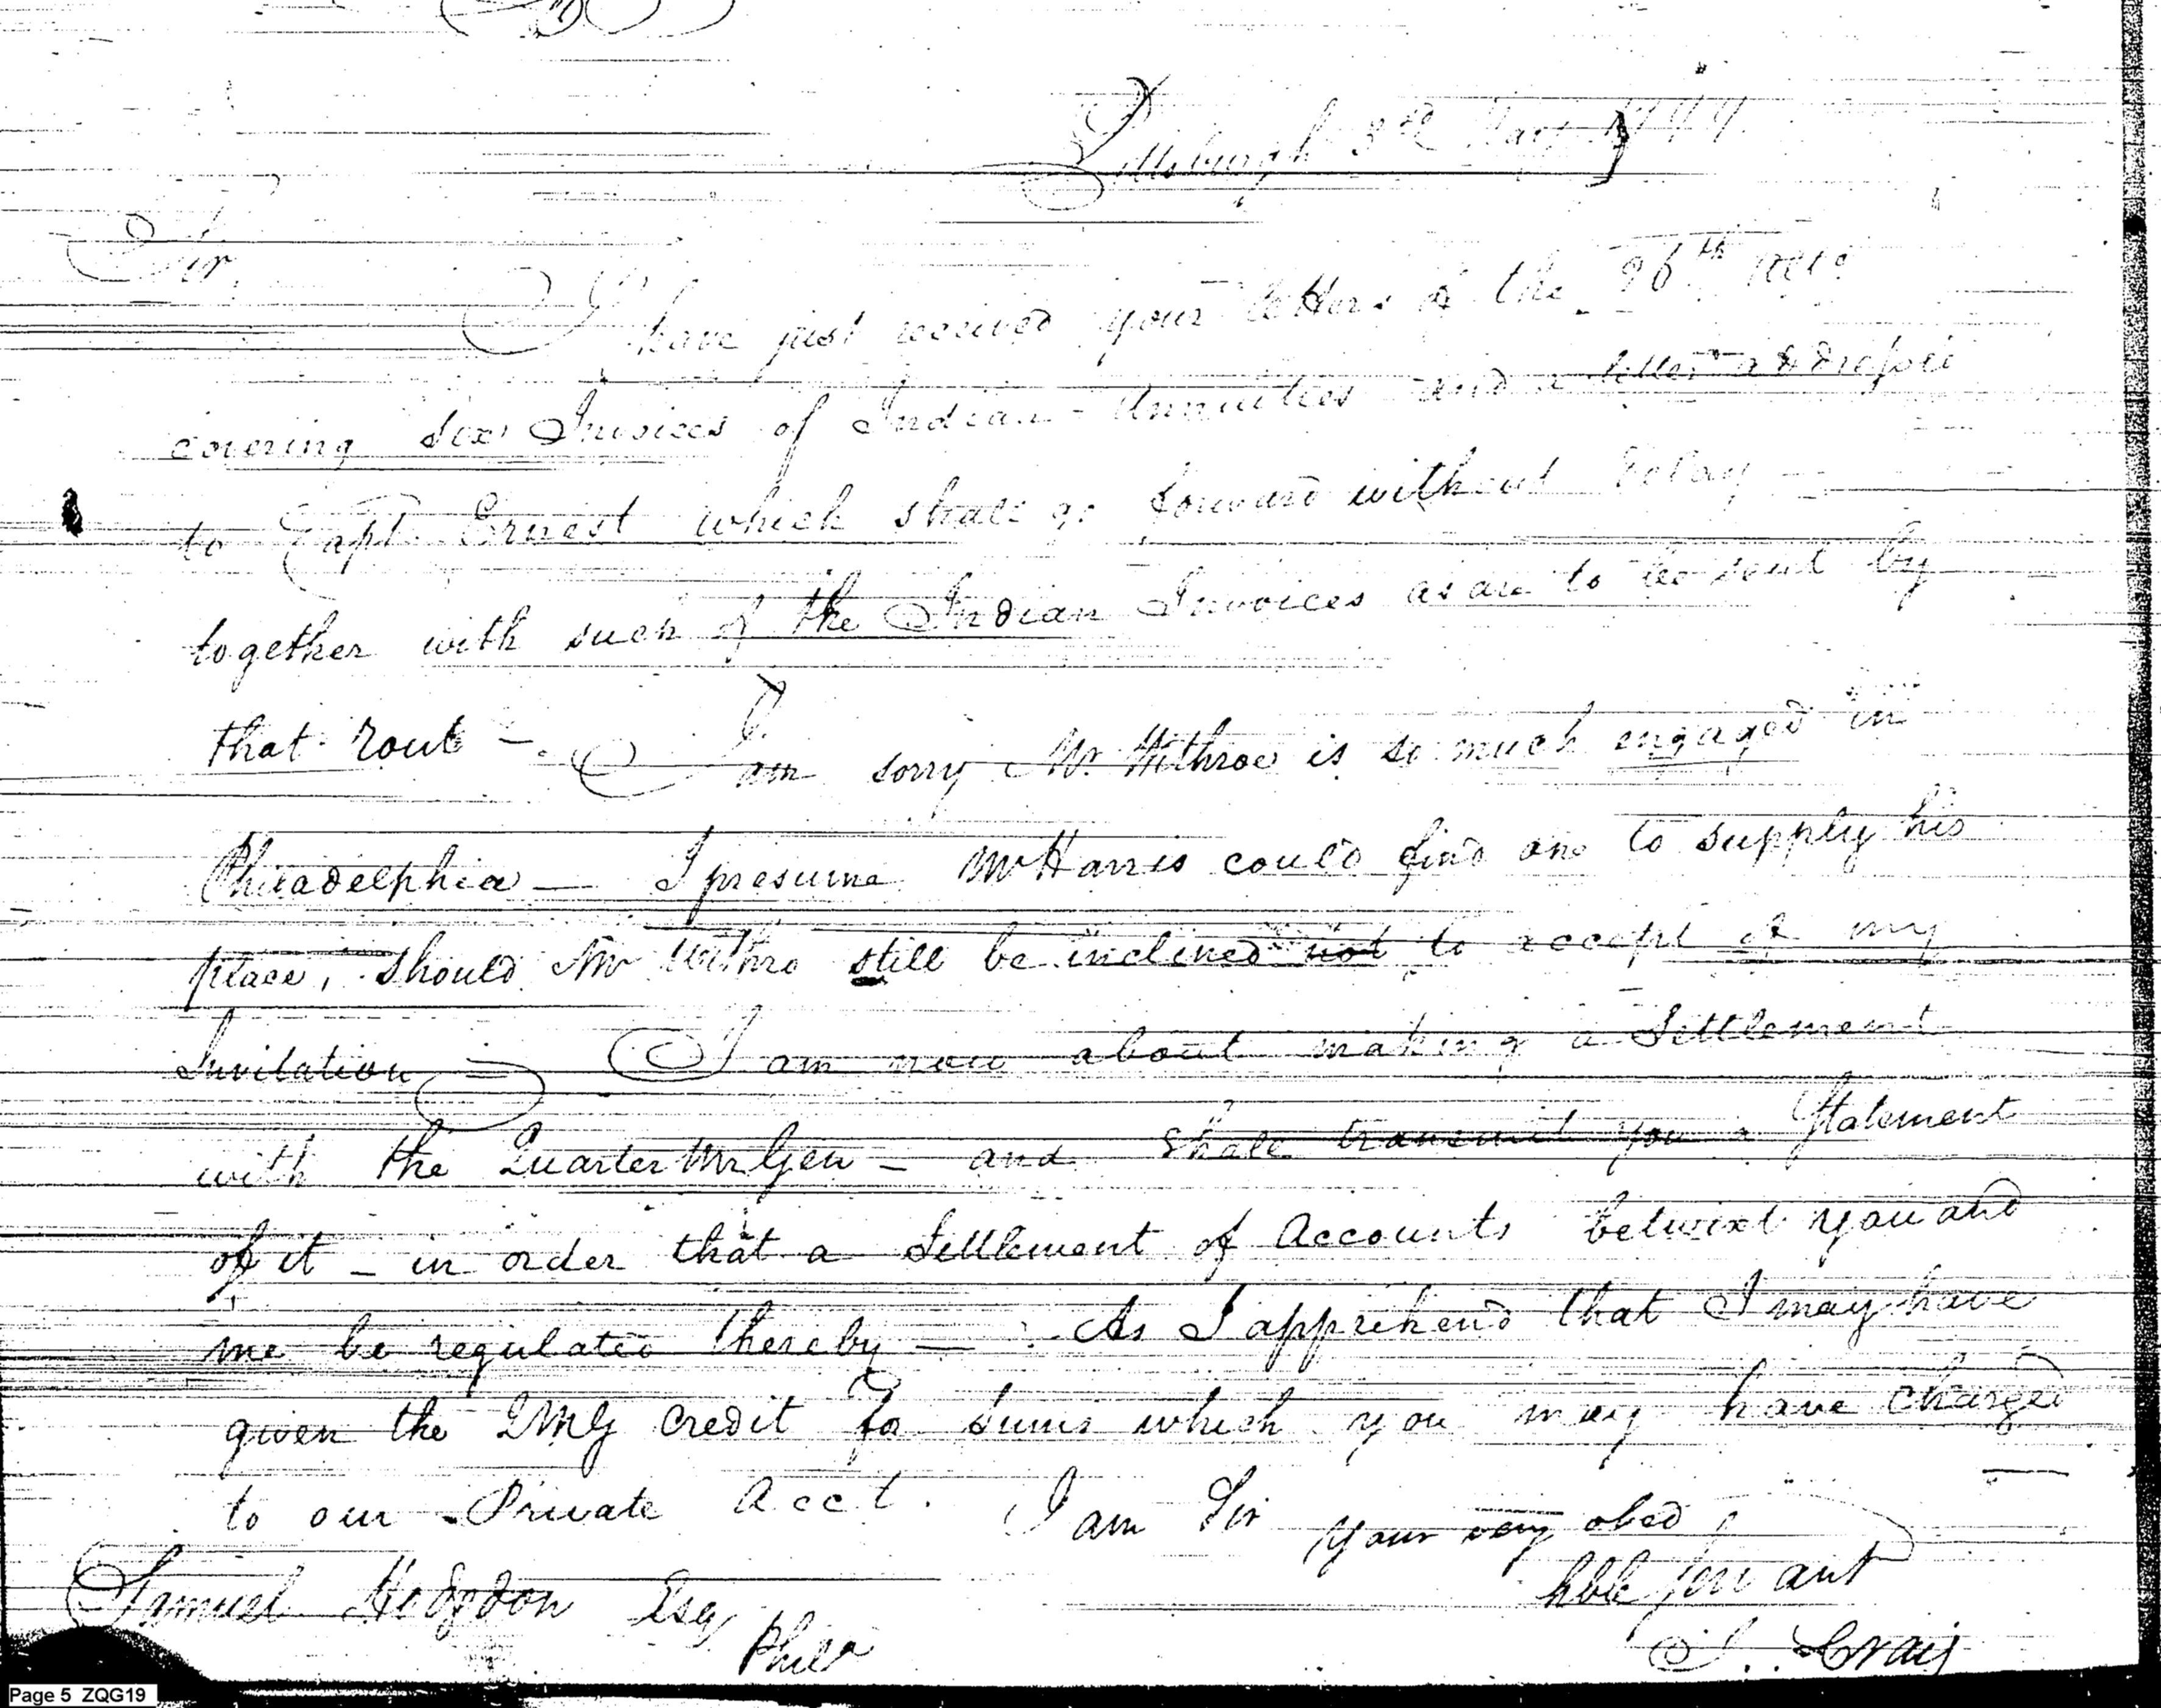 Pittsburgh 3rd May 1799
Sir,
I have just received your letters of the 26th Ulto
covering six Invoices of Indian Annuities and a letter addressed
to Capt. Ernest which shall go forward without delay —
together with such of the Indian Invoices as are to be sent by
that rout —. I am sorry Mr. Withroe is so much engaged in
Philadelphia — I presume Mr Harris could find one to supply his
place, should Mr Withro still be inclined not to accept of my
Invitation — I am now about making a Settlement
with the Quarter Mr Gen — and shall transmit you a Statement
of it — in order that a Settlement of Accounts betwixt you and
me be regulated thereby — As I apprehend that I may have
given the QMG credit for sums which you may have charged
to our Private Acct. I am Sir your very obed
hble Servant
Samuel Hodgdon Esq
Phila
I. Craig
Page 5 ZQG19